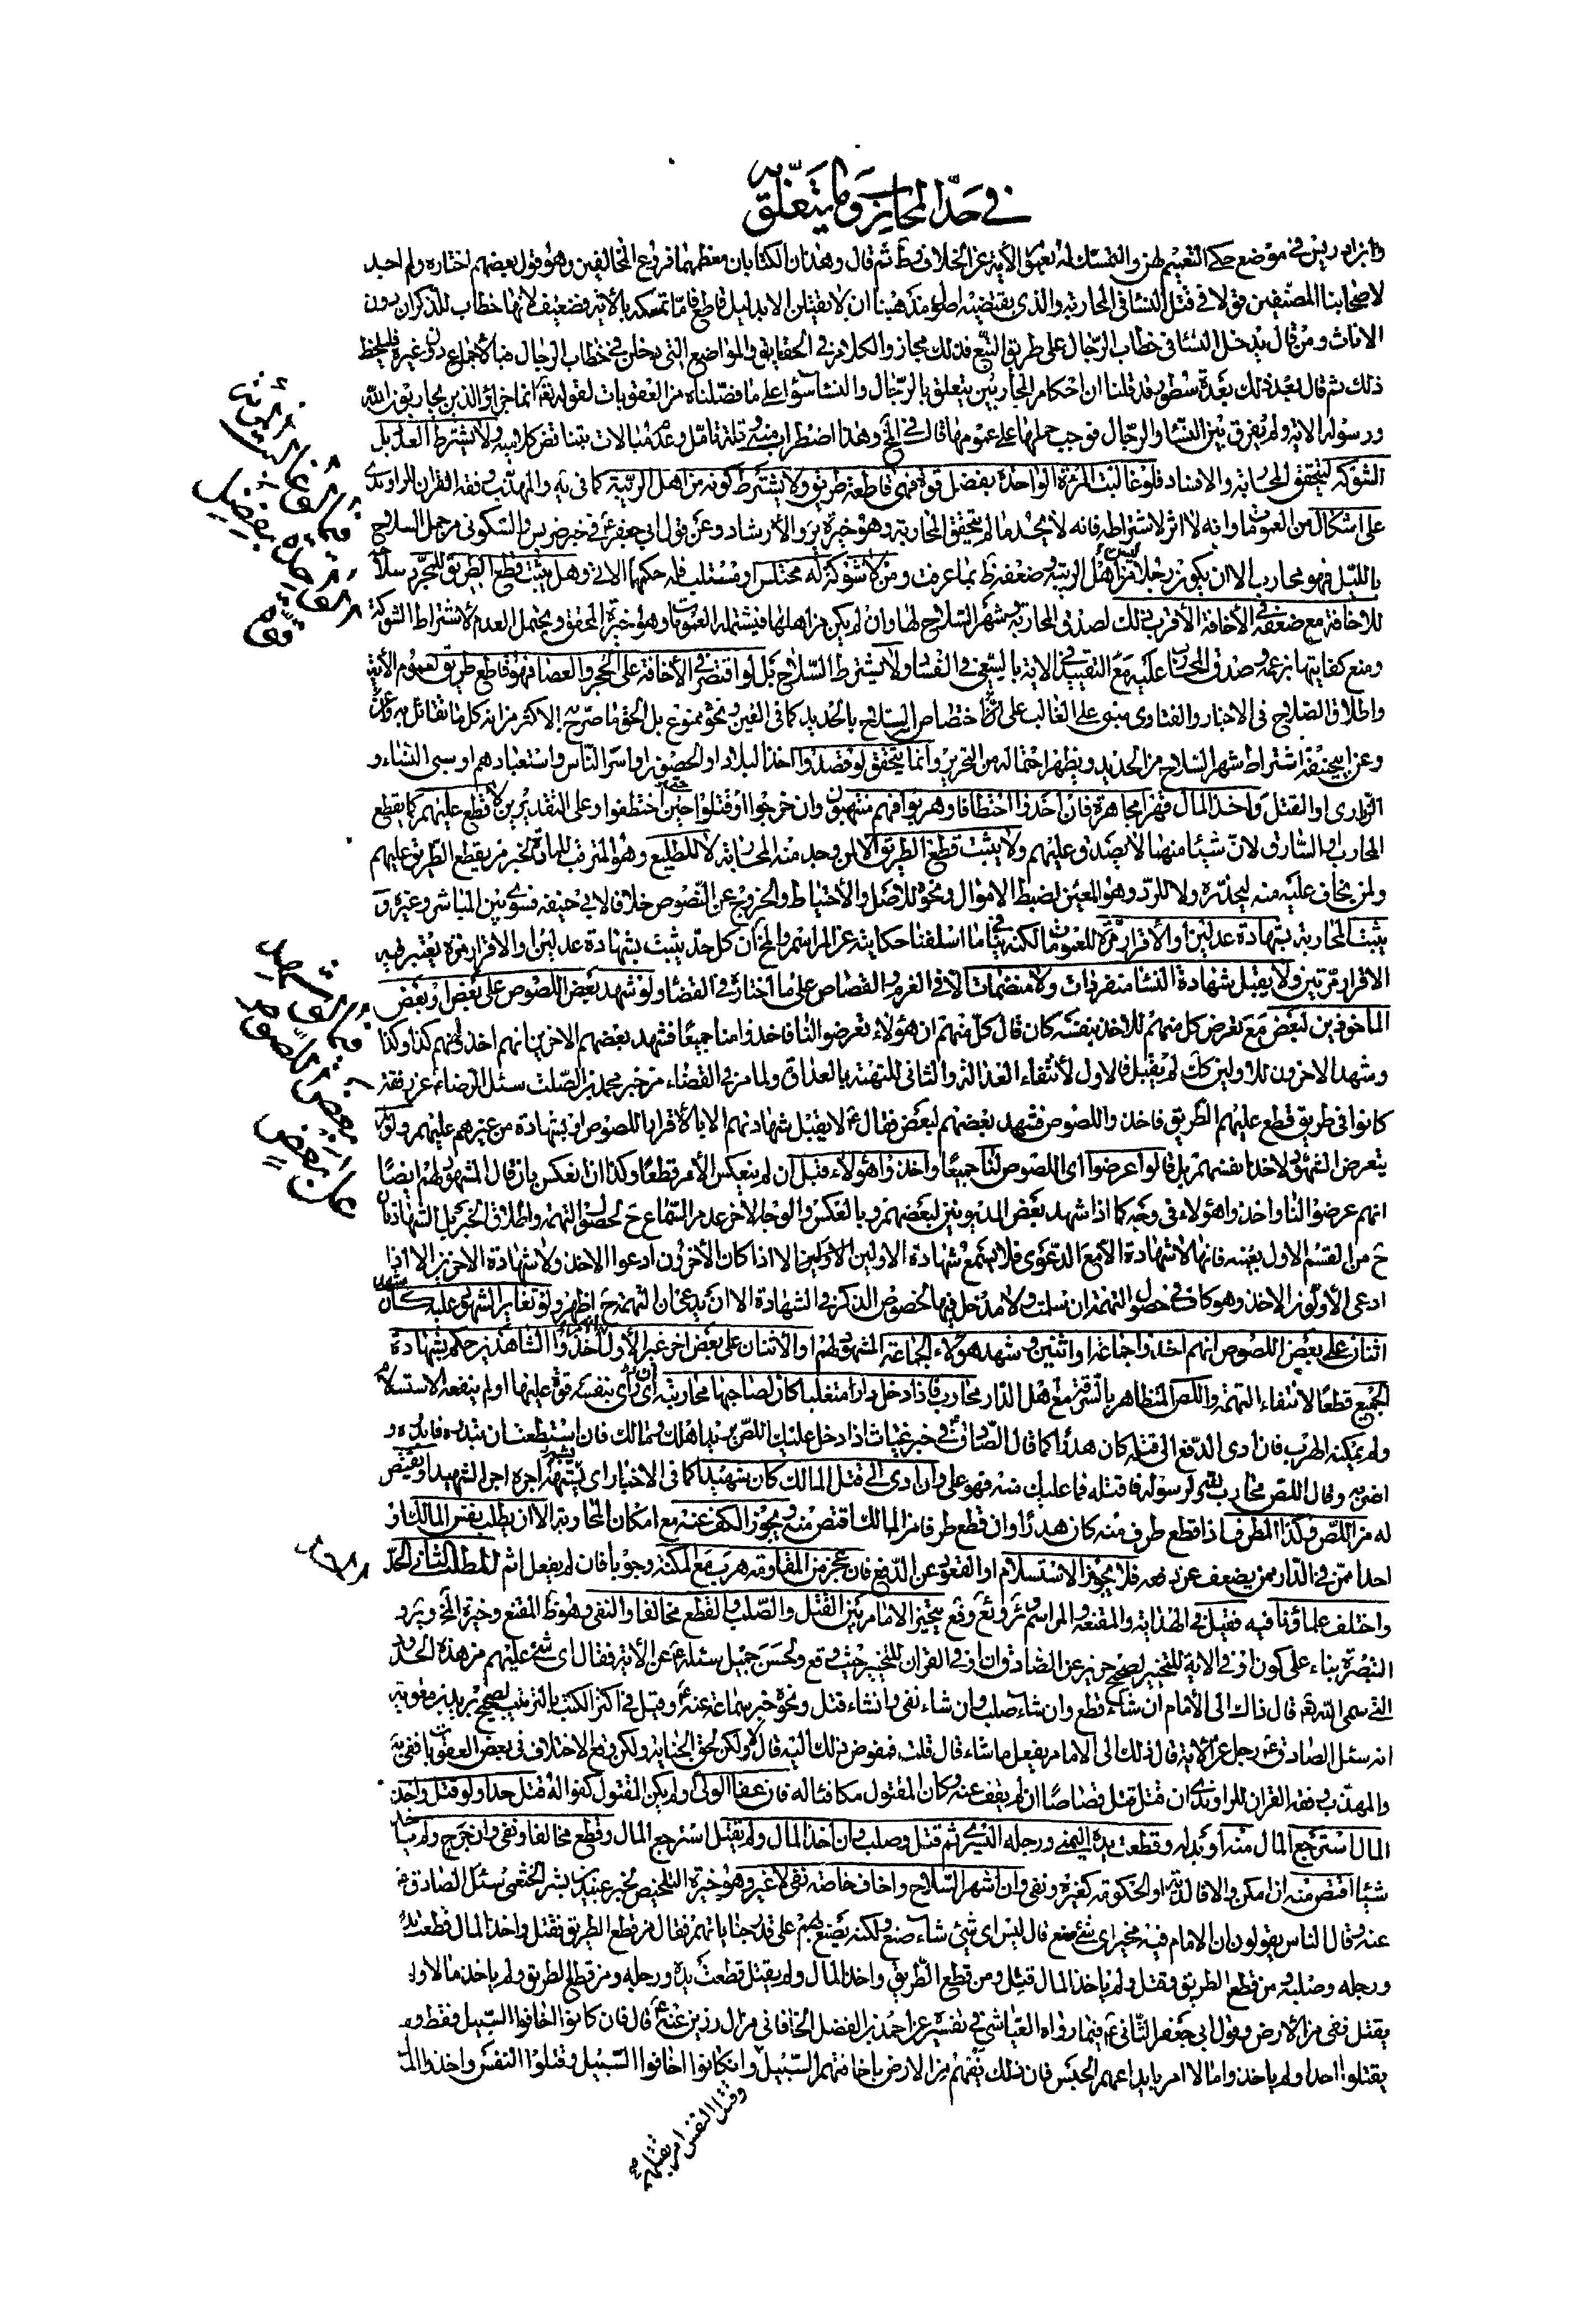 في حد المحارب وما يتعلق به
وابن ادريس في موضع حكى التعميم لهن والتمسك له بعموم الآية عن الخلاف وط ثم قال وهذان الكتابان معظمهما فروع المخالفين وهو قول بعضهم اختاره ولم اجد
لاصحابنا المصنفين قولا في قتل النساء في المحاربة والذي يقتضيه اصول مذهبنا ان لا يقتلن الا بدليل قاطع فاما تمسكه بالآية فضعيف لانها خطاب للذكران دون
الاناث ومن قال يدخل النساء في خطاب الرجال على طريق التبع فذلك مجاز والكلام في الحقايق والمواضع التي دخلن في خطاب الرجال فبالاجماع دون غيره فليلحظ
ذلك ثم قال بعد ذلك بعدة سطور قد قلنا ان احكام المحاربين يتعلق بالرجال والنساء سواء على ما فصلناه من العقوبات لقوله تعالى انما جزاؤ الذين يحاربون الله
ورسوله الاية ولم يفرق بين النساء والرجال فوجب حملها على عمومها قال في لخ وهذا اضطراب منه وقلة تامل وعدم مبالات بتناقض كلاميه ولا يشترط العدد بل
الشوكة ليتحقق المحاربة والافساد فلو غالبت المرئة الواحدة بفضل قوة فهي قاطعة طريق ولا يشترط كونه من اهل الريبة كما في يه والمهذب وفقه القران للراوندي
على اشكال من العمومات وانه لا اثر لاشتراطه فانه لا يحد ما لم يتحقق المحاربة وهو خيرة ير والارشاد وعن قول ابي جعفر ع في خبر ضريس والسكوني من حمل السلاح
بالليل فهو محارب الا ان يكون رجلا ليس من اهل الريبة وضعفه ظ بما عرفت ومن لا شوكة له مختلس او مستلب فله حكمهما الاتي وهل يثبت قطع الطريق للمجرد سلاحه
للاخافة مع ضعفه عن الاخافة الاقرب ذلك لصدق المحاربة وشهر السلاح لها وان لم يكن من اهلها فيشتمله العمومات وهو خيرة المحقق ويحتمل العدم لاشتراط الشوكة
ومنع كفايتها بزعمه وصدق المحارب عليه مع التقييد في الاية بالسعي في الفساد ولا يشترط السلاح بل لو اقتصر في الاخافة على الحجر والعصا فهو قاطع طريق لعموم الآية
واطلاق السلاح في الاخبار والفتاوى مبني على الغالب على ان اختصاص السلاح بالحديد كما في العين ونحوه ممنوع بل الحق ما صرح به الاكثر من انه كل ما يقاتل به
وعن ابي حنيفة اشتراط شهر السلاح من الحديد ويظهر احتماله من التحرير وانما يتحقق لو قصدوا اخذ البلاد او الحصون او اسر الناس واستعبادهم او سبي النساء و
الذراري او القتل واخذ المال قهرا مجاهرة فان اخذوا اختطافا وهربوا فهم منتهبون وان خرجوا او قتلوا حين اختطفوا وعلى التقديرين لا قطع عليهم كما يقطع
المحارب او السارق لان شيئا منهما لا يصدق عليهم ولا يثبت قطع الطريق الا لمن وجد منه المحاربة لا للطليع وهو المترقب للمارة ليخبر من يقطع الطريق عليهم
ولمن يخاف عليه منه ليحذره ولا للردء وهو المعين لضبط الاموال ونحوه للاصل والاحتياط والخروج عن النصوص خلافا لابي حنيفة فسوى بين المباشر وغيره و
يثبت المحاربة بشهادة عدلين او الاقرار مرة للعمومات لكنه ينافي ما اسلفنا حكايته عن المراسم ولخ ان كل حد يثبت بشهادة عدلين او الاقرار مرة يعتبر فيه
الاقرار مرتين ولا يقبل شهادة النساء منفردات ولا منضمات الا في الغرم والقصاص على ما اختاره في القضاء ولو شهد بعض اللصوص على بعض او بعض
الماخوذين لبعض مع تعرض كل منهم للاخذ بنفسه كان قال كل منهم ان هؤلاء تعرضوا لنا فاخذوا منا جميعا فشهد بعضهم الاخرين انهم اخذ منهم كذا وكذا
وشهد الاخرون للاولين كك لم يقبل فالاول لانتفاء العدالة والثاني للتهمة بالعداوة ولما مر في القضاء من خبر محمد بن الصلت سئل الرضا ع عن رفقة
كانوا في طريق قطع عليهم الطريق فاخذوا اللصوص فشهد بعضهم لبعض فقال ع لا يقبل شهادتهم الا باقرار اللصوص او بشهادة من غيرهم عليهم ولو لم
يتعرض الشهود لاخذ انفسهم بل قالوا عرضوا اي اللصوص لنا جميعا واخذوا هؤلاء قبل ان لم ينعكس الامر قطعا وكذا ان انعكس بان قال المشهود لهم ايضا
انهم عرضوا لنا واخذوا هؤلاء في وجه كما اذا شهد بعض المديونين لبعضهم وبالعكس والوجه الاخر عدم السماع ح لحصول التهمة واطلاق الخبر بل الشهادتان
ح من القسم الاول بعينه فانها لا شهادة الا مع الدعوى فلا يسمع شهادة الاولين الا اذا كان الاخرون ادعوا الاخذ ولا شهادة الاخرين الا اذا
ادعى الاولون الاخذ وهو كاف في حصول التهمة ان سلمت ولا مدخل فيها لخصوص الذكر في الشهادة الا ان يدعى ان التهمة ح اظهر ولو تغاير المشهود عليه كان شهد
اثنان على بعض اللصوص انهم اخذوا جماعة او اثنين وشهد هؤلاء الجماعة المشهود لهم او الاثنان على بعض اخر غير الاول اخذوا الشاهدين حكم بشهادة
الجميع قطعا لانتفاء التهمة واللص المتظاهر بالسرقة مع اهل الدار محارب فاذا دخل دارا متغلبا كان لصاحبها محاربته ان راى بنفسه قوة عليها او لم ينفعه الاستسلام
ولم يمكنه الهرب فان ادى الدفع الى قتله كان هدرا كما قال الصادق ع في خبر غياث اذا دخل عليك اللص يريد اهلك ومالك فان استطعت ان تبدره فابدره و
اضربه وقال اللص محارب لله ولرسوله فاقتله فما عليك منه فهو علي وان ادى الى قتل المالك كان شهيدا كما في الاخبار اي اجره اجر الشهيد ويقتص
له من اللص وكذا الطرف اذا قطع طرف منه كان هدرا وان قطع طرفا من المالك اقتص منه ويجوز الكف عنه مع امكان المحاربة الا ان يطلب نفس المالك او
احدا ممن في الدار ممن يضعف عن دفعه فلا يجوز الاستسلام او القعود عن الدفع فان عجز من المقاومة هرب مع المكنة وجوبا فان لم يفعل اثم المطلب الثاني الحد
واختلف علماؤنا فيه فقيل في الهداية والمقنعة والمراسم وئر وئع وفع يتخير الامام بين القتل والصلب والقطع مخالفا والنفي وهو ظ المقنع وخيرة لخ وير و
التبصرة بناء على كون او في الاية للتخيير لصحيح حريز عن الصادق ع ان او في القران للتخيير حيث وقع ولحسن جميل سئله ع عن الآية فقال اي شئ عليهم من هذه الحدود
التي سمى الله تعالى قال ذاك الى الامام ان شاء قطع وان شاء صلب وان شاء نفى وان شاء قتل ونحوه خبر سماعة عنه ع وقيل في اكثر الكتب بالترتيب لصحيح بريد بن معوية
انه سئل الصادق ع رجل عن الاية قال ذلك الى الامام يفعل ما شاء قال قلت فمفوض ذلك اليه قال لا ولكن بحق الجناية ولكن وقع الاختلاف في بعض العقوبات ففي يه
والمهذب وفقه القران للراوندي ان قتل قتل قصاصا ان لم يعف عنه وكان المقتول مكافئا له فان عفا الولي او لم يكن المقتول كفوا له قتل حدا ولو قتل واخذ
المال استرجع المال منه او بدله وقطعت يده اليمنى ورجله اليسرى ثم قتل وصلب وان اخذ المال ولم يقتل استرجع المال وقطع مخالفا ونفي وان جرح ولم ياخذ
شيئا اقتص منه ان امكن والا فالدية او الحكومة كغيره ونفي وان اشهر السلاح واخاف خاصة نفي لا غير وهو خيرة التلخيص لخبر عبيد بن بشر الخثعمي سئل الصادق ع
عنه وقال الناس يقولون ان الامام فيه مخير اي شئ صنع قال ليس اي شئ شاء صنع ولكنه يصنع بهم على قدر جناياتهم فقال من قطع الطريق فقتل واخذ المال قطعت يده
ورجله وصلب ومن قطع الطريق وقتل ولم ياخذ المال قتل ومن قطع الطريق واخذ المال ولم يقتل قطعت يده ورجله ومن قطع الطريق ولم ياخذ مالا ولم
يقتل نفي من الارض وقول ابي جعفر الثاني ع فيما رواه العياشي في تفسيره عن احمد بن الفضل الخاقاني من ال رزين عنه ع قال فان كانوا اخافوا السبيل فقط ولم
يقتلوا احدا ولم ياخذوا مالا امر بايداعهم الحبس فان ذلك نفيهم من الارض باخافتهم السبيل وان كانوا اخافوا السبيل وقتلوا النفس واخذوا المال
وقتلوا النفس امر بقتلهم
فلو غالبت المرئة
الواحدة بفضل
قوة
فيما لو شهد
بعض اللصوص
على بعض
الحد